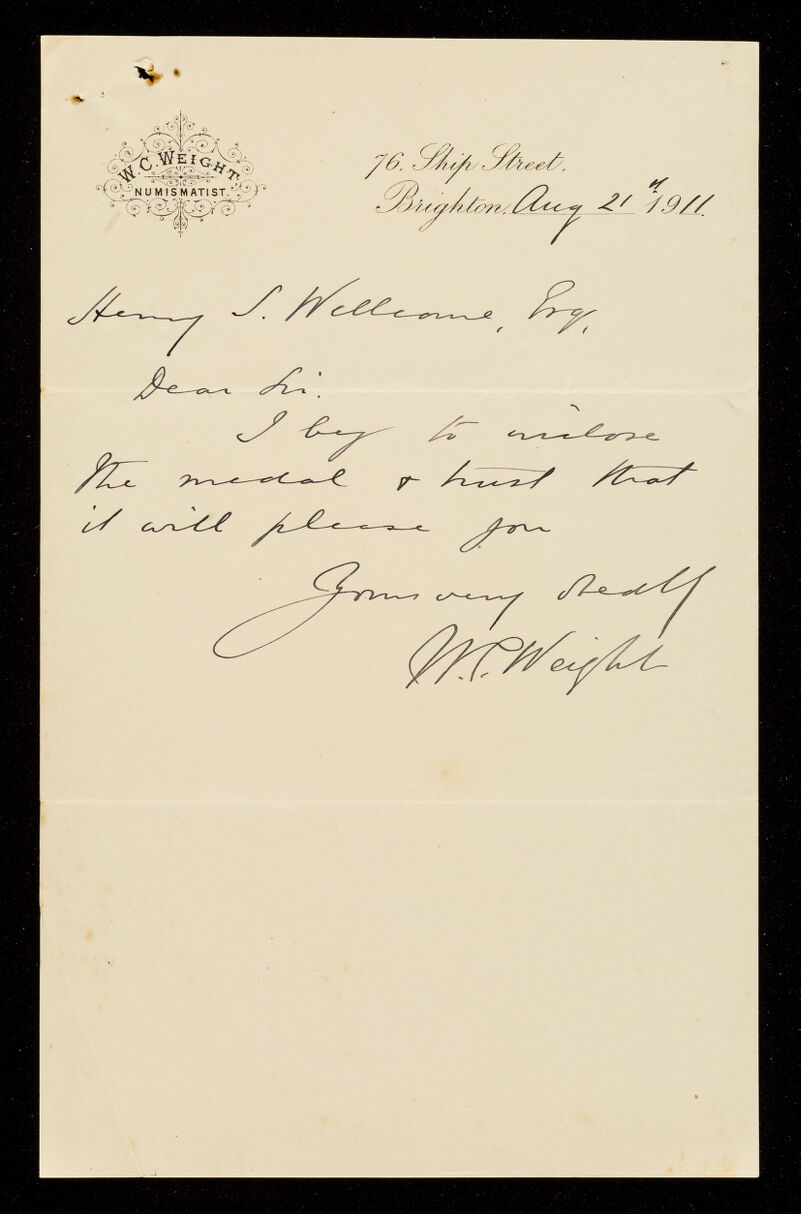 W. C. WEIGHT
NUMISMATIST.
76, Ship Street,
Brighton, Aug 21st 1911.
Henry S. Wellcome, Esq,
Dear Sir.
I beg to inclose
the medal & trust that
it will please you
Yours very
W. C. Weight